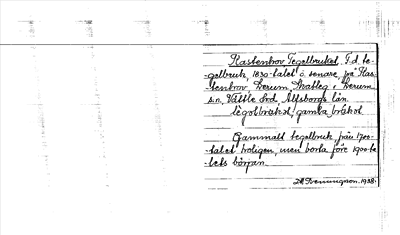 Hastentrov, Tegelbruket, F.d. te-
gelbruk, 1830-talet o. senare, på Has-
tentrov, Lerum, Skatteg. i Lerums
sn, Vättle hrd, Älfsborgs län
tegelbrukat, gamla brukat
Gammalt tegelbruk, från 1700-
talet troligen, men borta före 1900-ta-
lets början.
1938.